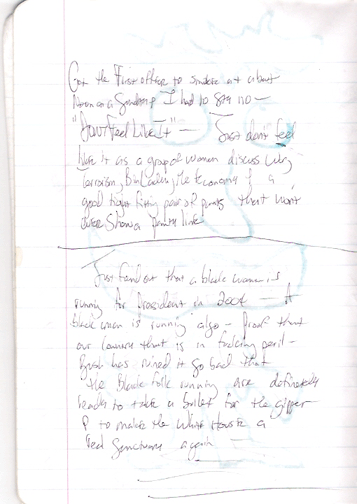 Got the First offer to smoke at about
Noon on a Sunday & I had to say no —
"Don't Feel Like It" — Just don't feel
like it as a group of women discuss Iraq,
terrorism, Bin Laden, the Economy & a
good tight fitting pair of pants that won't
ever show a panty line
Just found out that a black woman is
running for President in 2004 — A
black man is running also — Proof that
our country that is in fucking peril —
Bush has ruined it so bad that
the Black folk running are definitely
ready to take a bullet for the gipper
& to make the White House a
feel Sanctuary again —